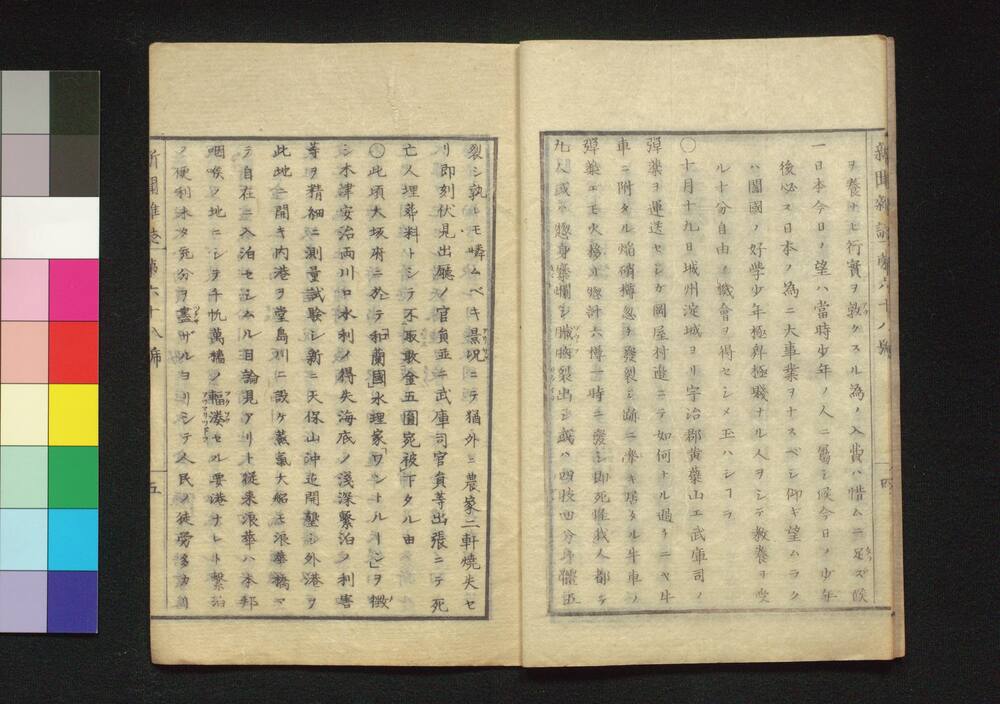 新聞雜誌第六十八號
ヲ養ナヒ行實ヲ敦クスル為ノ入費ハ惜ムニ足ズ候
一日本今日ノ望ハ當時少年ノ人ニ屬シ候今日ノ少年
後必ス日本ノ為ニ大事業ヲナスベシ仰ギ望ムラク
ハ闔國ノ好学少年極卑極賤ナル人ヲシテ教養ヲ受
ル十分自由ノ機會ヲ得セシメ玉ハンコヲ
〇十月十九日城州淀城ヨリ宇治郡黄蘗山エ武庫司ノ
彈藥ヲ運送セシガ岡屋村邉ニテ如何ナル過チニヤ牛
車ニ附タル焔硝樽忽チ發裂シ跡ニ牽キ居タル牛車ノ
彈藥エモ火移リ惣計六樽一時ニ發シ即死怪我人都テ
九人或ハ惣身糜爛シ臓腑裂出シ或ハ四肢四分
四
裂シ孰レモ憐ムベキ景况ニテ猶外ニ農家二軒焼失セ
リ即刻伏見出廳ノ官員並ニ武庫司官員等出張ニテ死
亡人埋葬料トシテ不取敢金五圓宛被下タル由
〇此頃大坂府ニ於テ和蘭國水理家「ワントルーン」ヲ徴
シ木津安治両川口水利ノ得失海底ノ淺深繋泊ノ利害
等ヲ精細ニ測量試験シ新ニ天保山沖邉開墾シ外港ヲ
此地ニ開キ内港ヲ堂島川ニ設ケ蒸氣大船モ浪華橋マ
テ自在ニ入泊セシムル目論見アリト従来浪華ハ本邦
咽喉ノ地ニシテ千帆萬檣ノ輻湊セル要港ナレト繋泊
ノ便利未タ充分ヲ盡サザルヨリシテ人民ノ徒勞多カリ
新聞雜誌第六十八號
五